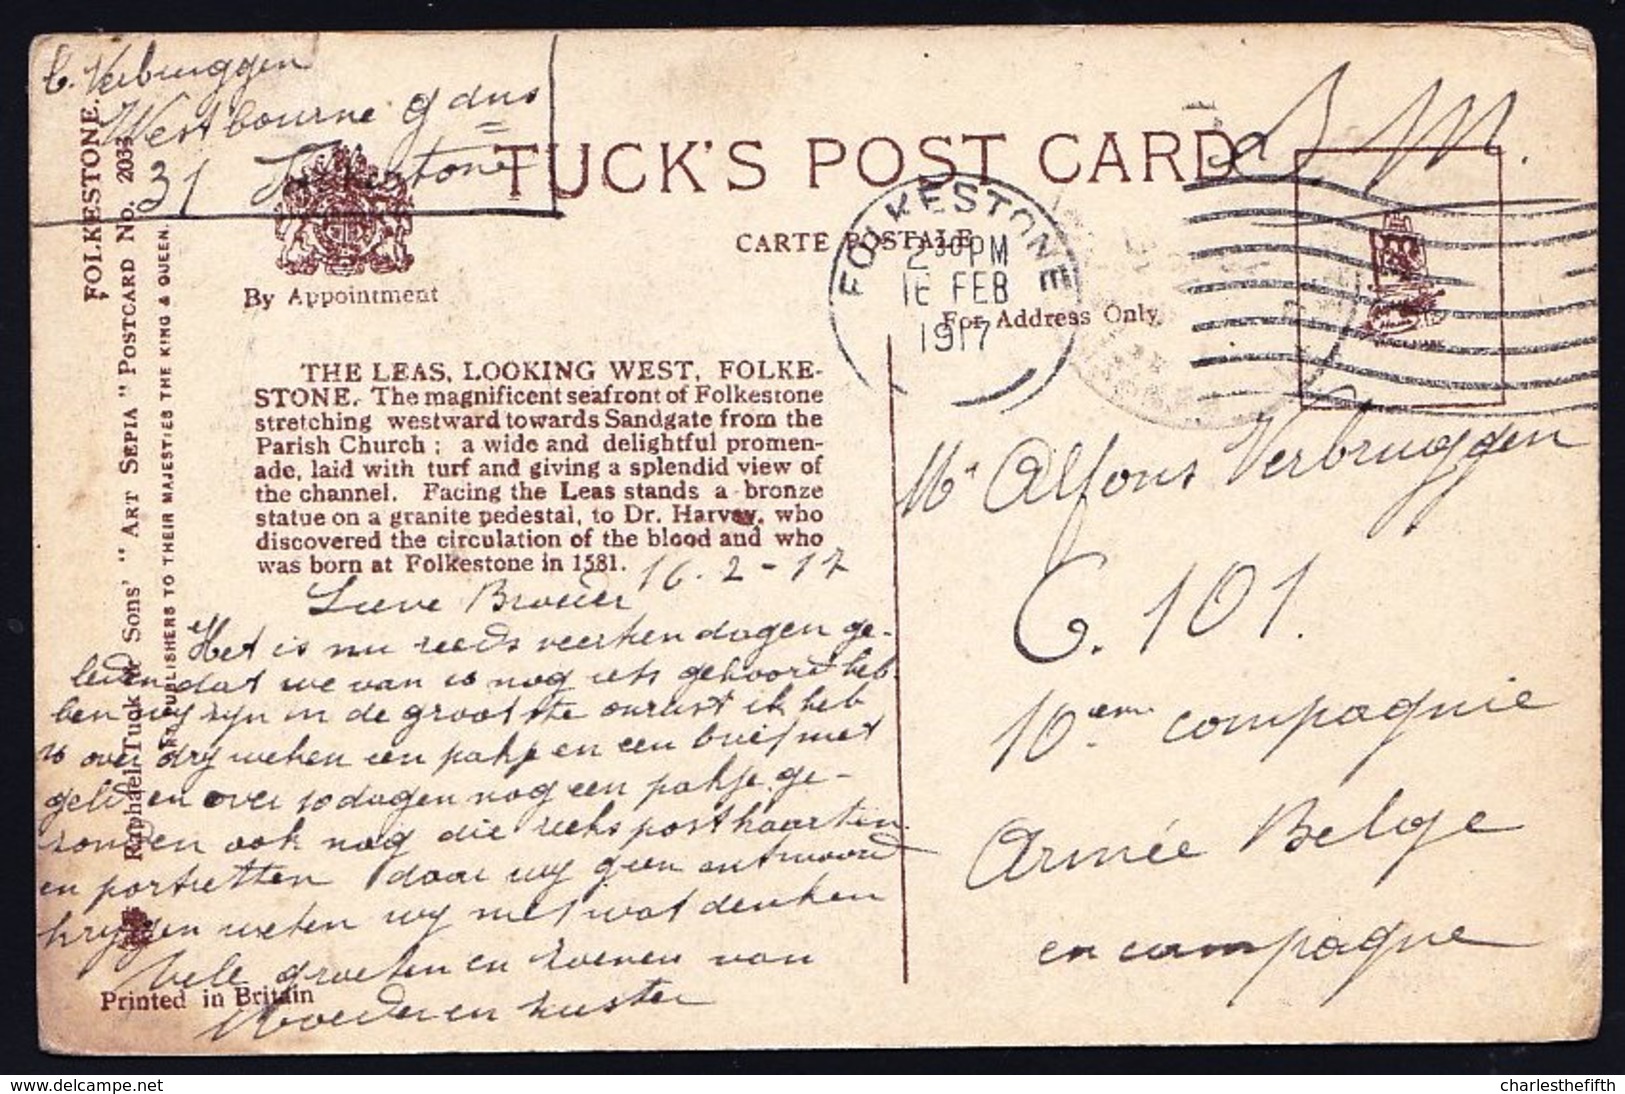 C. Verbruggen
Westbourne gdns
31 Folkestone
S M.
TUCK'S POST CARD
CARTE POSTALE
By Appointment
For Address Only
FOLKESTONE
2 30 PM
16 FEB
1917
FOLKESTONE.
Raphael Tuck & Sons' "ART SEPIA" POSTCARD No. 2033
ART PUBLISHERS TO THEIR MAJESTIES THE KING & QUEEN.
THE LEAS, LOOKING WEST, FOLKE-
STONE. The magnificent seafront of Folkestone
stretching westward towards Sandgate from the
Parish Church; a wide and delightful promen-
ade, laid with turf and giving a splendid view of
the channel. Facing the Leas stands a bronze
statue on a granite pedestal, to Dr. Harvey, who
discovered the circulation of the blood and who
was born at Folkestone in 1581.
16-2-17
Lieve Broeder
Het is nu reeds veertien dagen ge-
leden dat we van u nog iets gehoord heb-
ben wy zyn in de grootste onrust ik heb
u over dry weken een pakje en een brief met
geld en over 10 dagen nog een pakje ge-
zonden ook nog die reeks postkaarten
en portretten daar wy geen antwoord
krygen weten wy niet wat denken
Vele groeten en zoenen van
Moeder en zuster
Printed in Britain
Mr Alfons Verbruggen
C. 101.
10eme compagnie
Armée Belge
en campagne
charlesthefifth